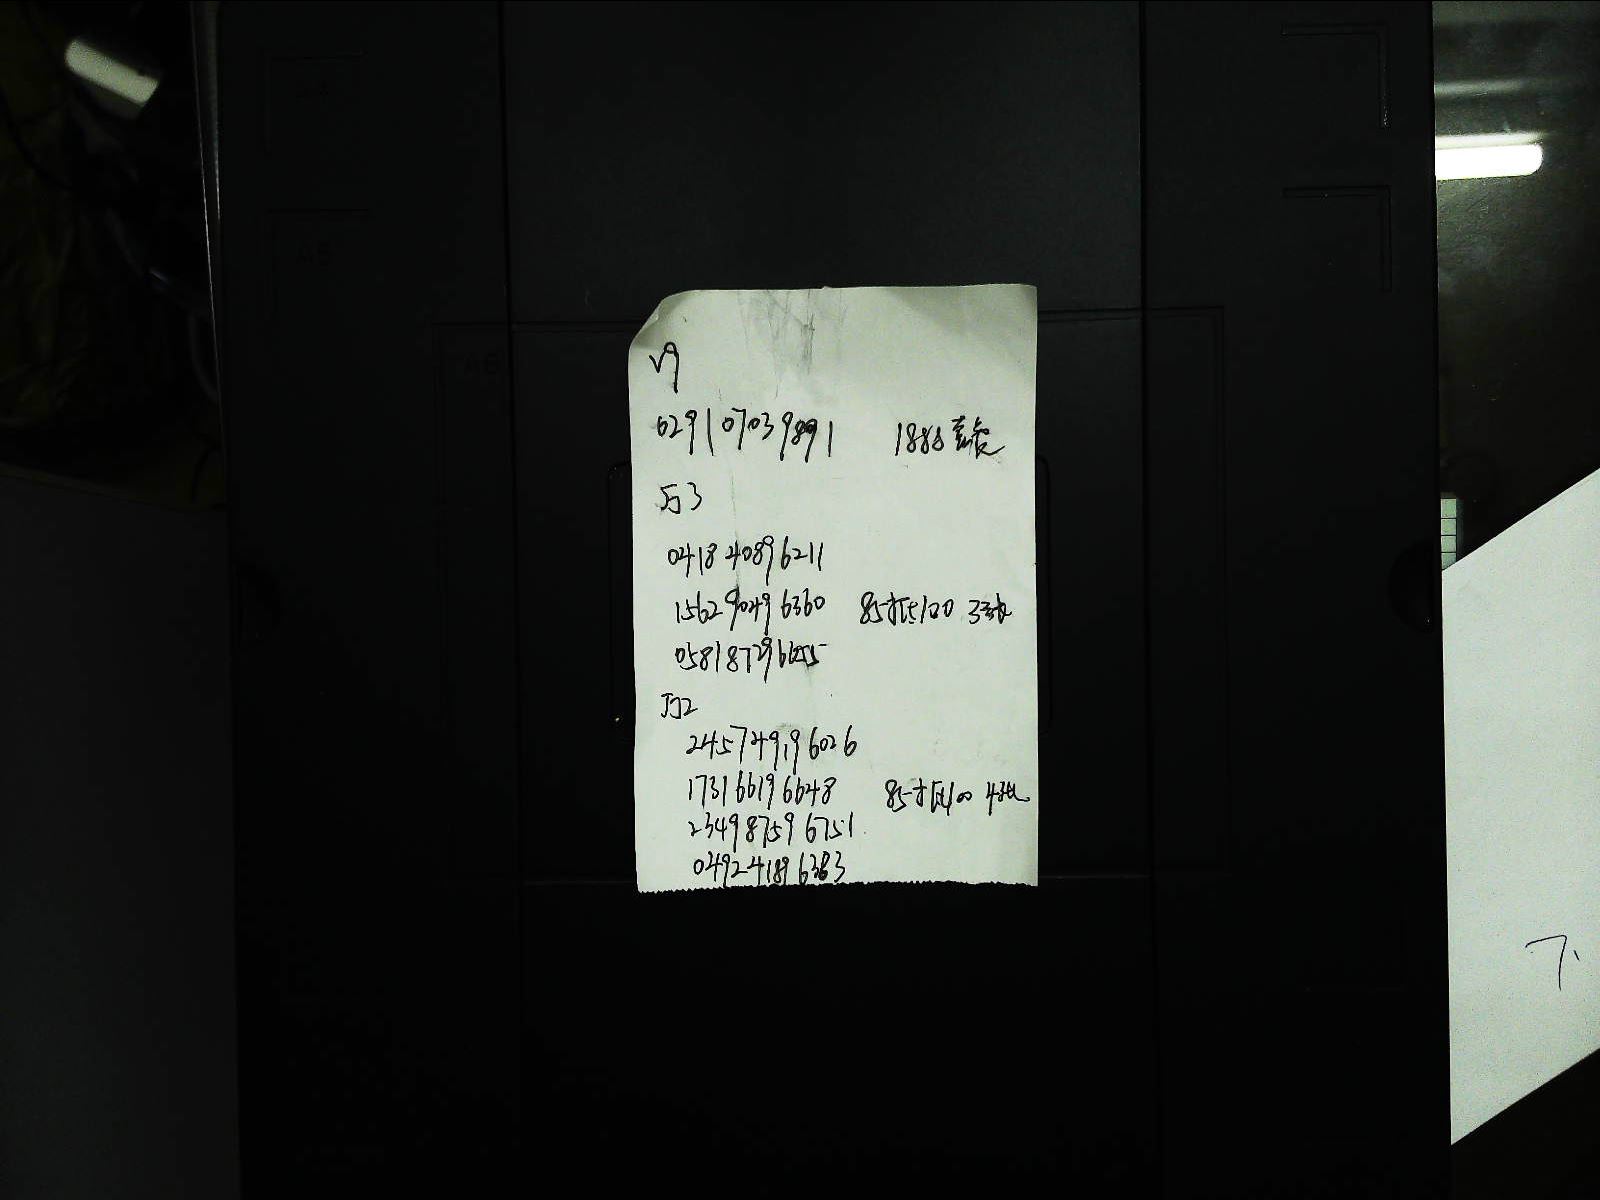 V9
029107039891 1888套餐
J3
041840896211
156290496360 85抵100 3张
058187296655
J2
245749196026
173166196648 85抵100 4张
234987596751
049241896383
A5
A6